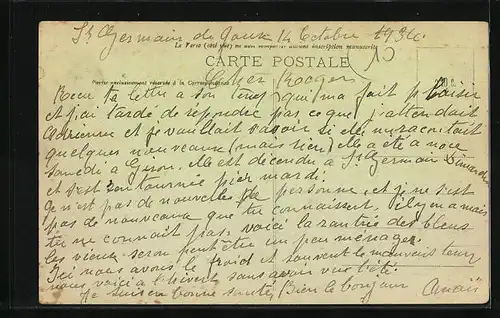 St Germain de Joux 14 Octobre 1934.
Le Verso (côté vue) ne doit comporter aucune inscription manuscrite
CARTE POSTALE
Partie exclusivement réservée à la Correspondance
Cher Rogers
Recu ta lettre a son temp qui ma fait plaisir
et j'ai tardé de répondre pas ce que j'attendait
Adrienne et je vaillait savoir si elle m'racontait
quelques nouveaux (mais rien) elle a eté a noce
samedi a Giron. elle est décendu a St Germain Dimanche
et s'est zon tournée pier mardi.
Je n'est pas de nouvelles de personne. et je ne s'est
pas de nouveaux que tu connaissent. il y en a mais
tu ne connait pas. voici la rantrée des bleus
les vieux seron peut être un peu ménager.
Ici nous avons le froid et souvent le mauvais temp
nous voici a l'hivert sans avoir vue l'été.
Je suis en bonne santé, Bien le bonjour Anaïs